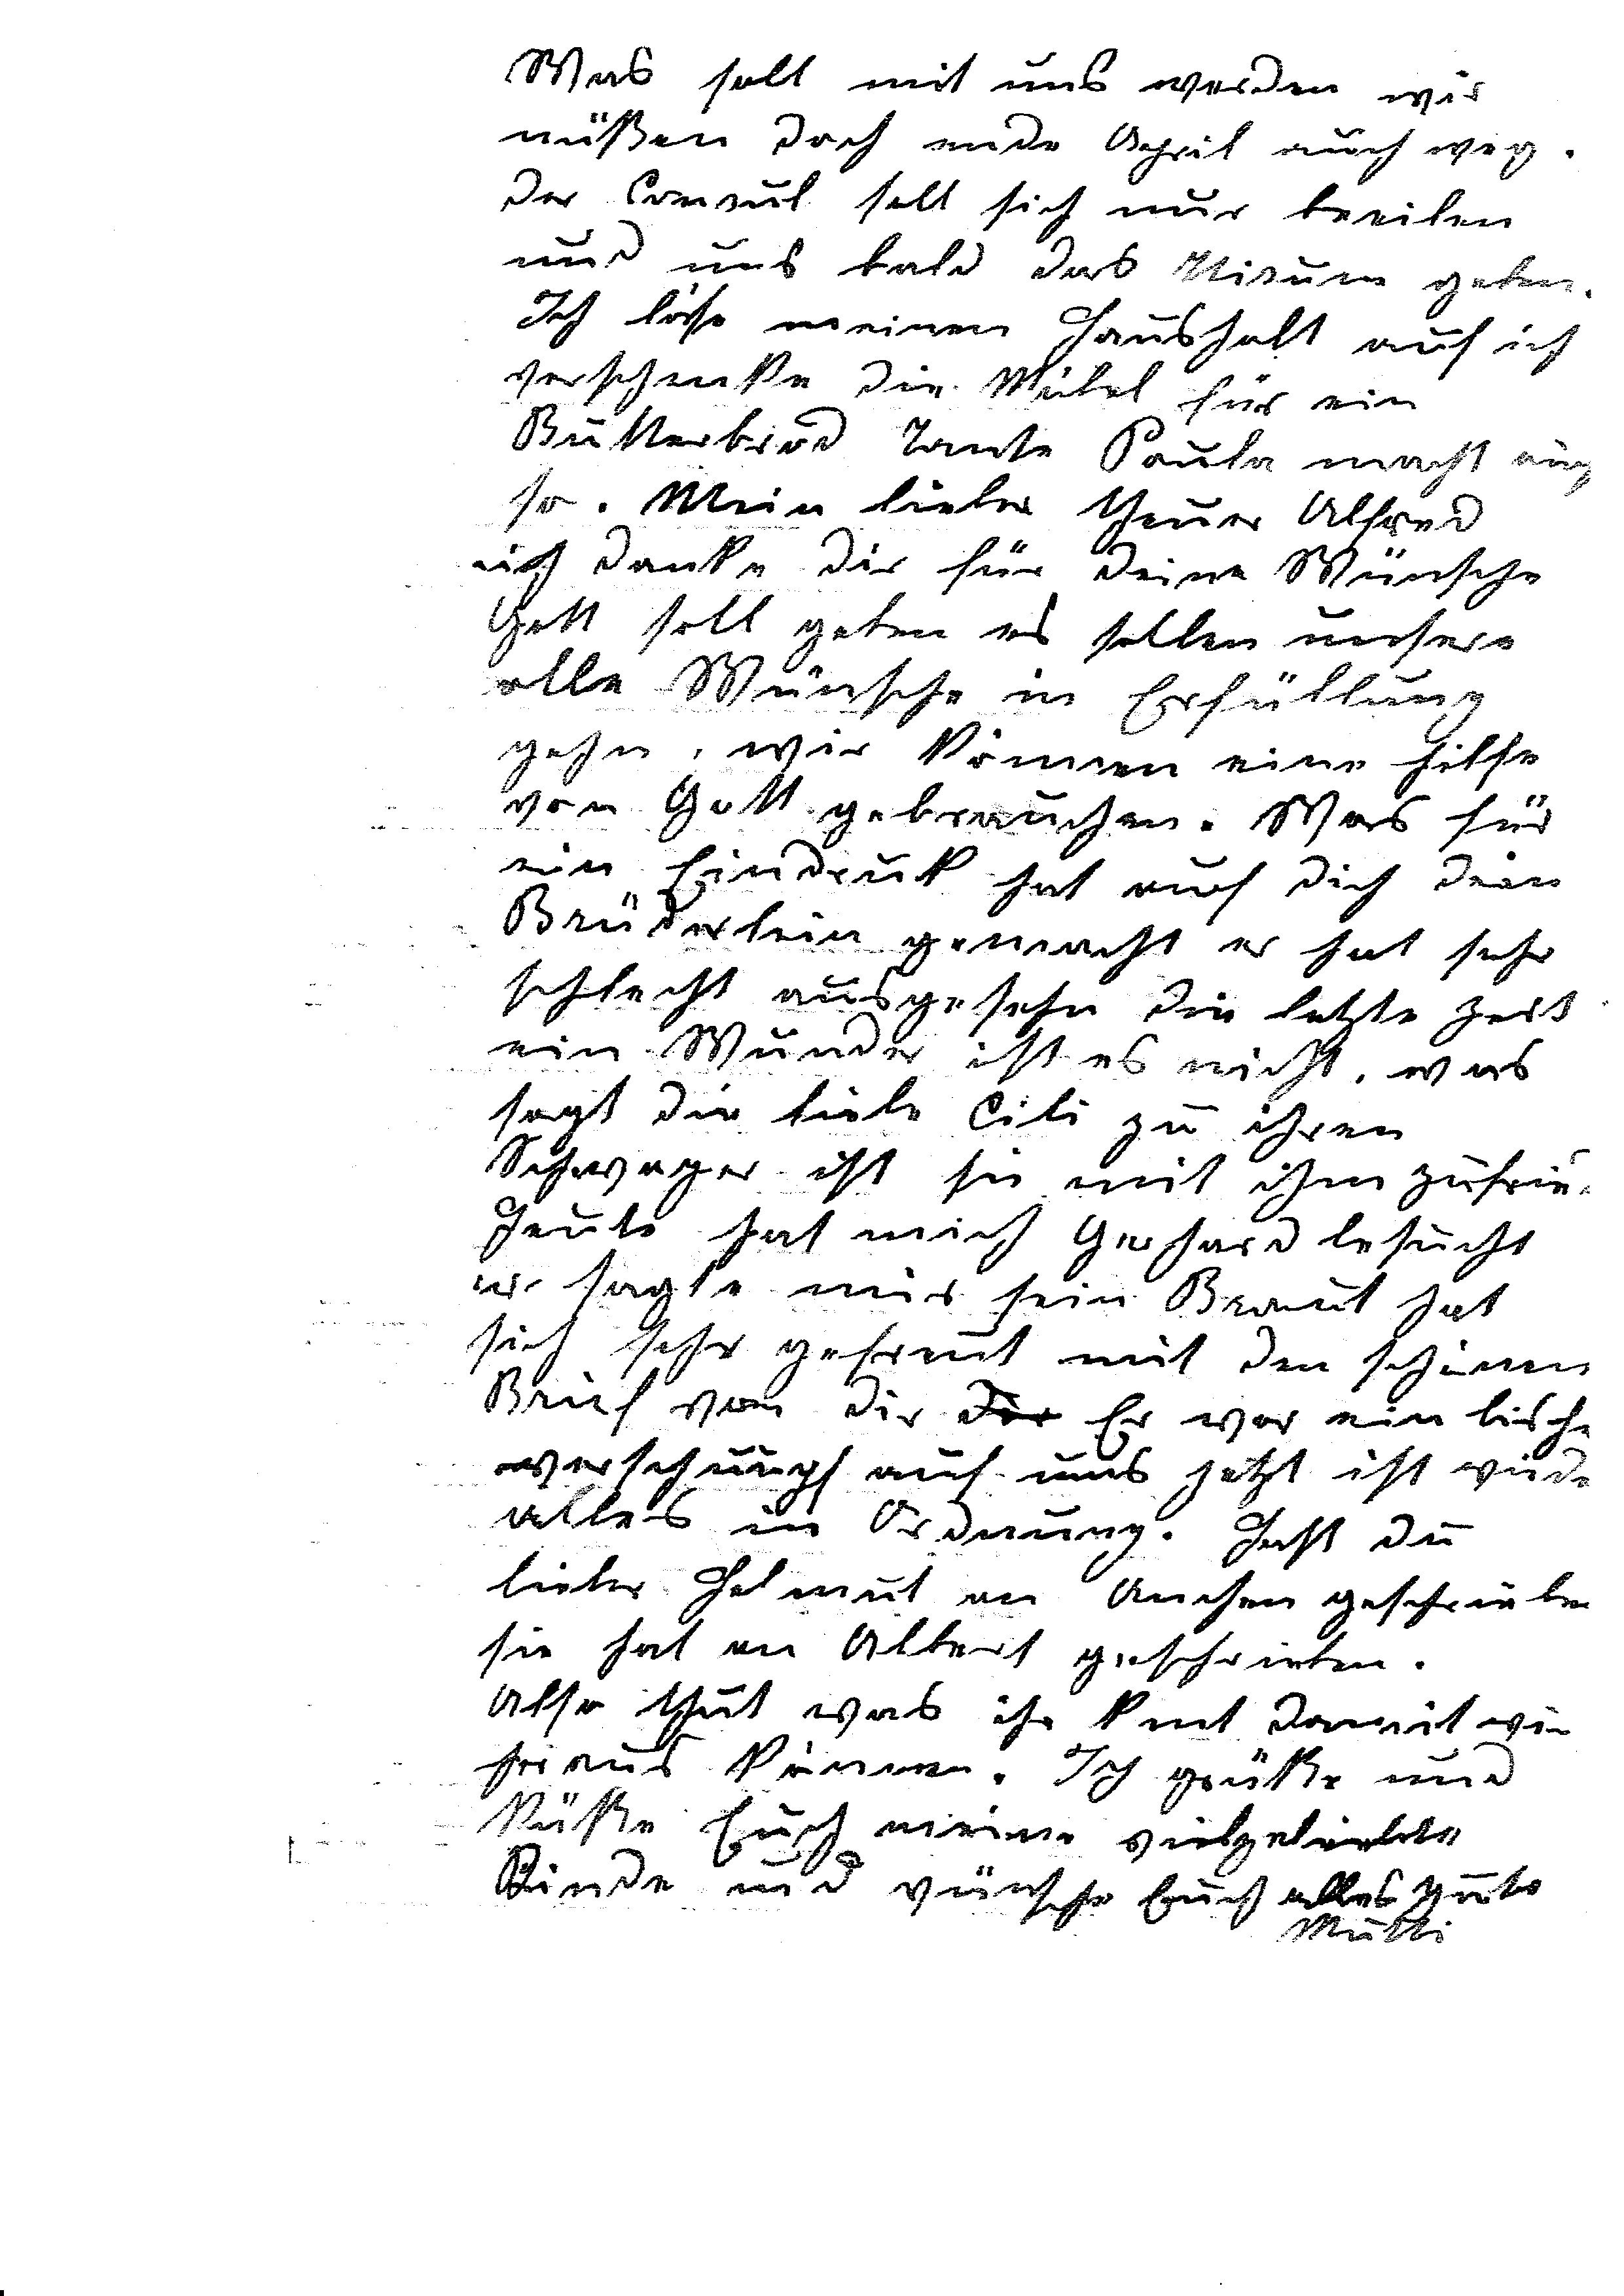 Was soll mit uns werden wir
müßen doch ende April auch weg.
der Consul soll sich nur beeilen
und uns bald das Visum geben.
Ich löse meinen Haushalt auf ich
verschenke die Möbel für ein
Butterbrod Tante Paula macht auch
so. Mein lieber theurer Alfred
ich danke dir für deine Wünsche
Gott soll geben es sollen unsere
alle Wünsche in Erfüllung
gehn, wir können eine hilfe
von Gott gebrauchen. Was für
ein Eindruk hat auf dich dein
Brüderlein gemacht er hat sehr
schlecht ausgesehn die letzte zeit
ein Wunder ist es nicht, was
sagt die liebe Cili zu ihren
Schwager ist sie mit ihm zufrie
Heute hat mich Gerhard besucht
er sagte mir sein Braut hat
sich sehr gefreut mit den schönen
Brief von dir dir Er war ein bische
verschnupf auf uns jetzt ist wiede
alles in Ordnung. Hast du
lieber Helmut an Anchen geschriebe
sie hat an Albert geschrieben.
Also thut was ihr knt damit wir
heraus können. Ich grüße und
küße Euch meine vielgeliebte
Kinde und wünsche Euch alles gute
Mutti